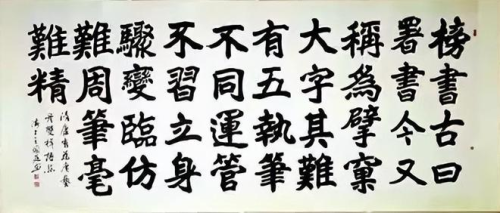 榜書古曰
署書今又
稱為擘窠
大字其難
有五執筆
不同運管
不習立身
驟變臨仿
難周筆毫
難精
清康有為廣藝
舟雙楫